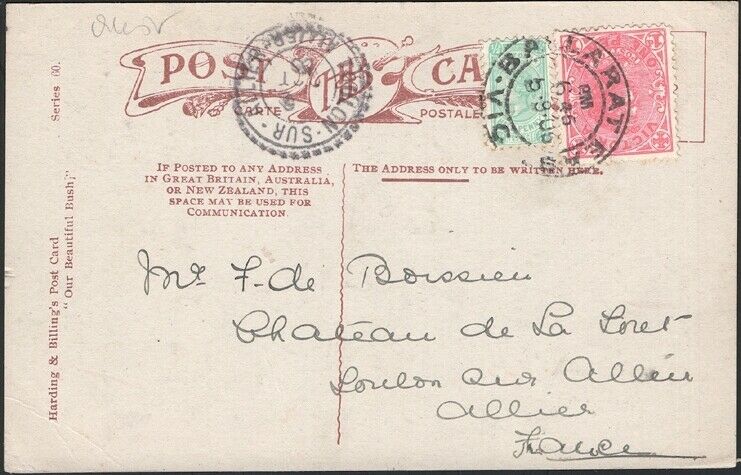 Aust
POST CARD
CARTE POSTALE
BALLARAT
VIC
Series 60.
Harding & Billing's Post Card
"Our Beautiful Bush;"
IF POSTED TO ANY ADDRESS
IN GREAT BRITAIN, AUSTRALIA,
OR NEW ZEALAND, THIS
SPACE MAY BE USED FOR
COMMUNICATION.
THE ADDRESS ONLY TO BE WRITTEN HERE.
Mr F. de Boissieu
Chateau de La Loret
Loulon sur Allier
Allier
France